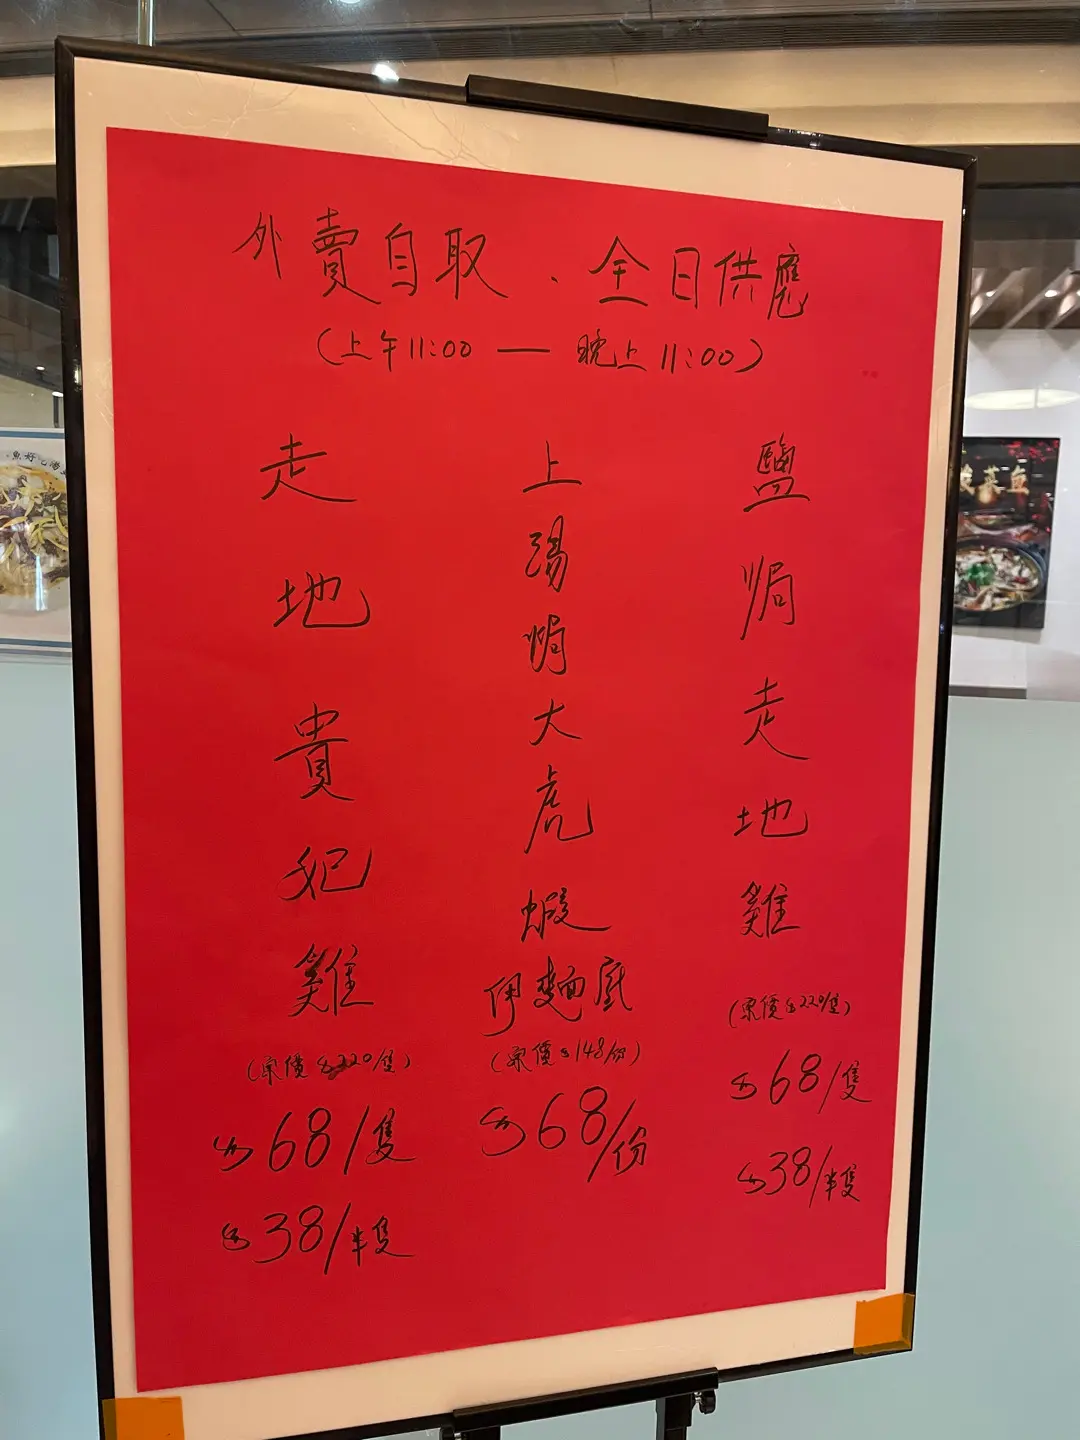 外賣自取．全日供應
(上午11:00 — 晚上11:00)
鹽焗走地雞
(原價$220/隻)
$68/隻
$38/半隻
上湯焗大虎蝦
伊麵底
(原價$148/份)
$68/份
走地貴妃雞
(原價$220/隻)
$68/隻
$38/半隻
酸菜鱼